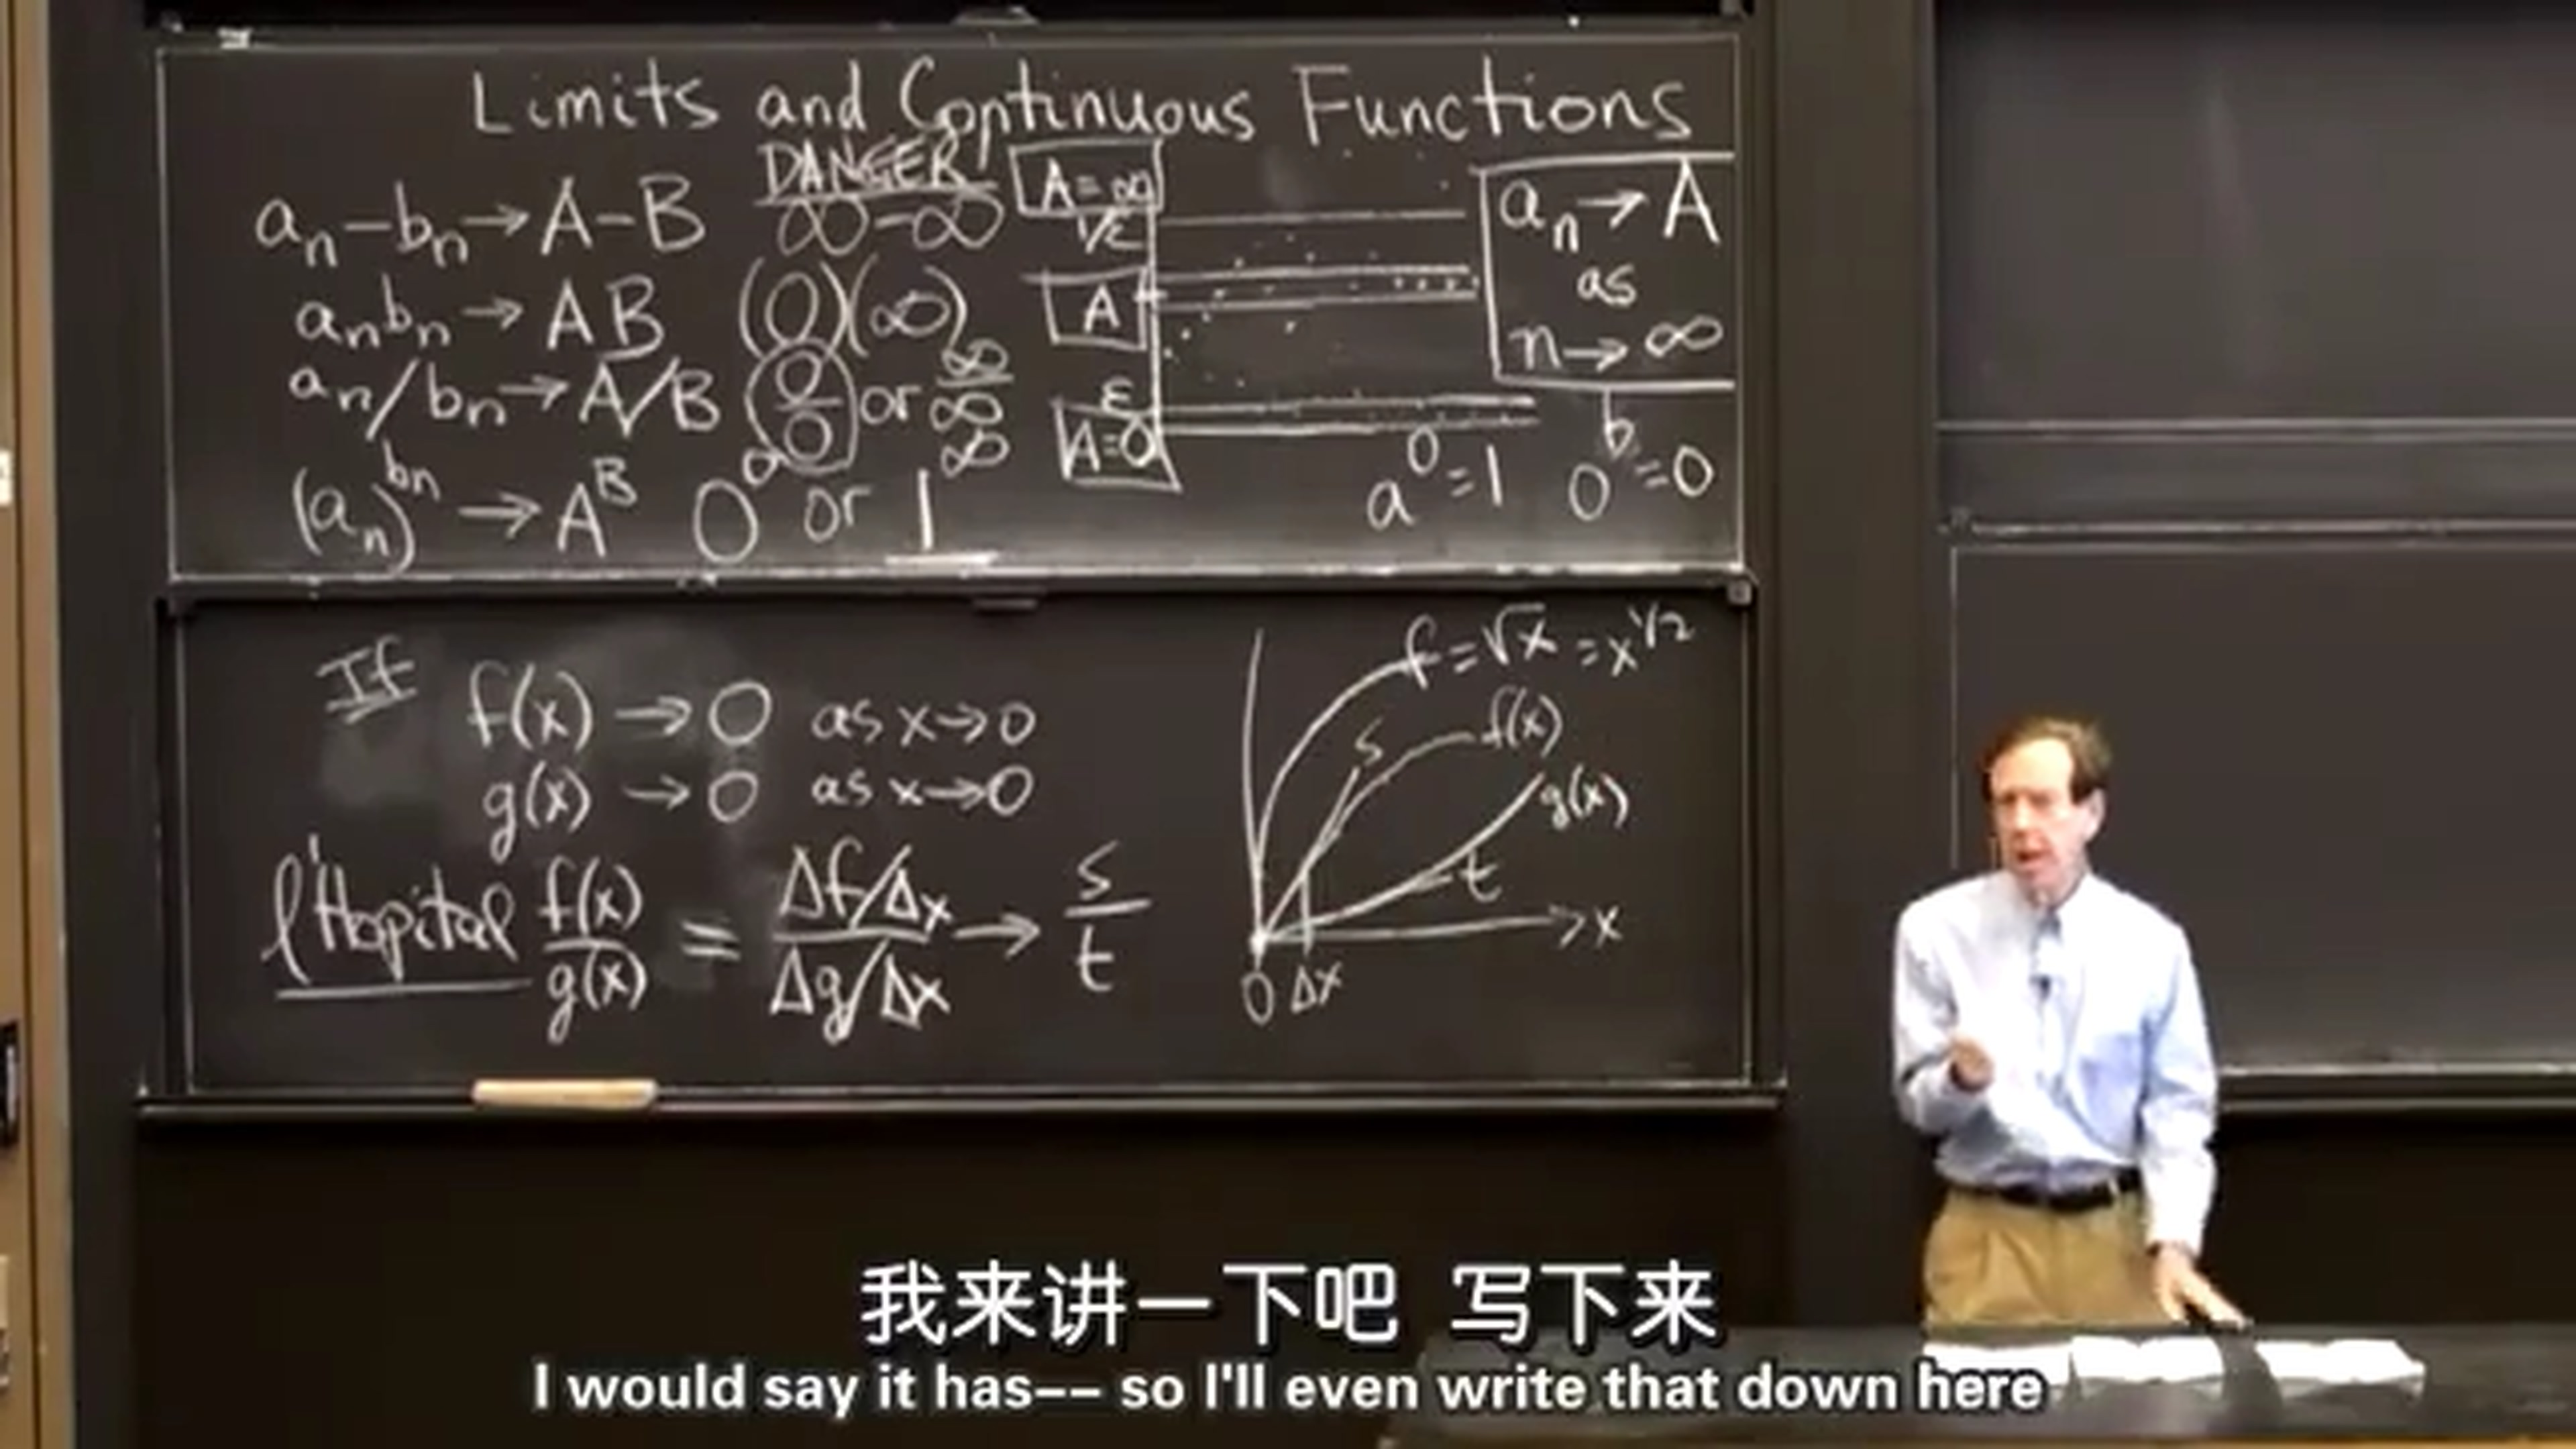 Limits and Continuous Functions
DANGER
aₙ-bₙ→A-B ∞-∞
aₙbₙ→AB (0)(∞)
aₙ/bₙ→A/B 0/0 or ∞/∞
(aₙ)^bₙ→A^B 0^0 or 1^∞
A=∞
1/ε
A
ε
A=0
aₙ→A
as
n→∞
a^0=1 0^b=0
If f(x)→0 as x→0
g(x)→0 as x→0
l'Hopital f(x)/g(x) = (Δf/Δx)/(Δg/Δx) → s/t
f=√x=x^1/2
s f(x)
g(x)
t
x
0 Δx
我来讲一下吧 写下来
I would say it has-- so I'll even write that down here